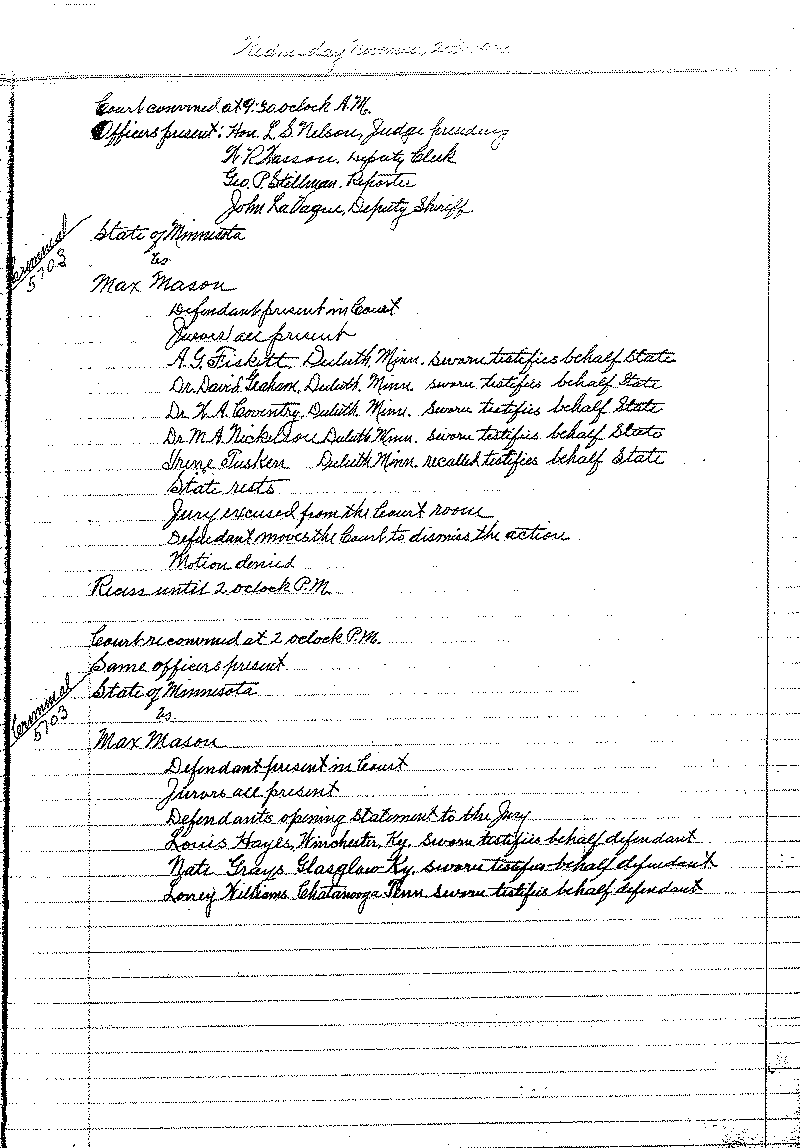 Wednesday November 24
Court convened at 9:30 oclock A.M.
Officers present: Hon. L S. Nelson, Judge presiding
Deputy Clerk
Geo. P. Stellman, Reporter
John LaVaque, Deputy Sheriff
Criminal
5703
State of Minnesota
vs
Max Mason
Defendant present in Court
Jurors all present
A. G. Fiskett, Duluth, Minn. sworn testifies behalf State
Dr. David Graham, Duluth, Minn. sworn testifies behalf State
Dr. N. A. Coventry, Duluth, Minn. sworn testifies behalf State
Dr. M A Nickelson Duluth Minn. sworn testifies behalf State
Irene Tusken Duluth Minn. recalled testifies behalf State
State rests
Jury excused from the Court room
Defendant moves the Court to dismiss the action
Motion denied
Recess until 2 oclock P.M.
Court reconvened at 2 oclock P.M.
Same officers present
Criminal
5703
State of Minnesota
vs
Max Mason
Defendant present in Court
Jurors all present
Defendants opening statement to the Jury
Louis Hayes, Winchester, Ky. sworn testifies behalf defendant
Nate Grays Glasglow Ky. sworn testifies behalf defendant
Loney Williams Chatanooga Tenn sworn testifies behalf defendant